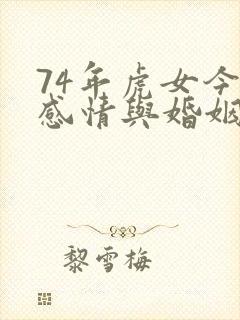 74年虎女今
感情與婚姻
黎雪梅